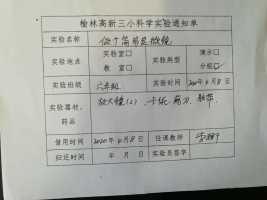 榆林高新三小科学实验通知单
实验名称 做个简易显微镜
实验地点 实验室□ 教室□ 实验类型 演示□ 分组☑
实验班级 六年级 实验时间 2020年4月8日
实验器材、药品 放大镜(2)、卡纸、剪刀、胶带
借用时间 2020年4月8日 任课教师
归还时间 年 月 日 实验员签字